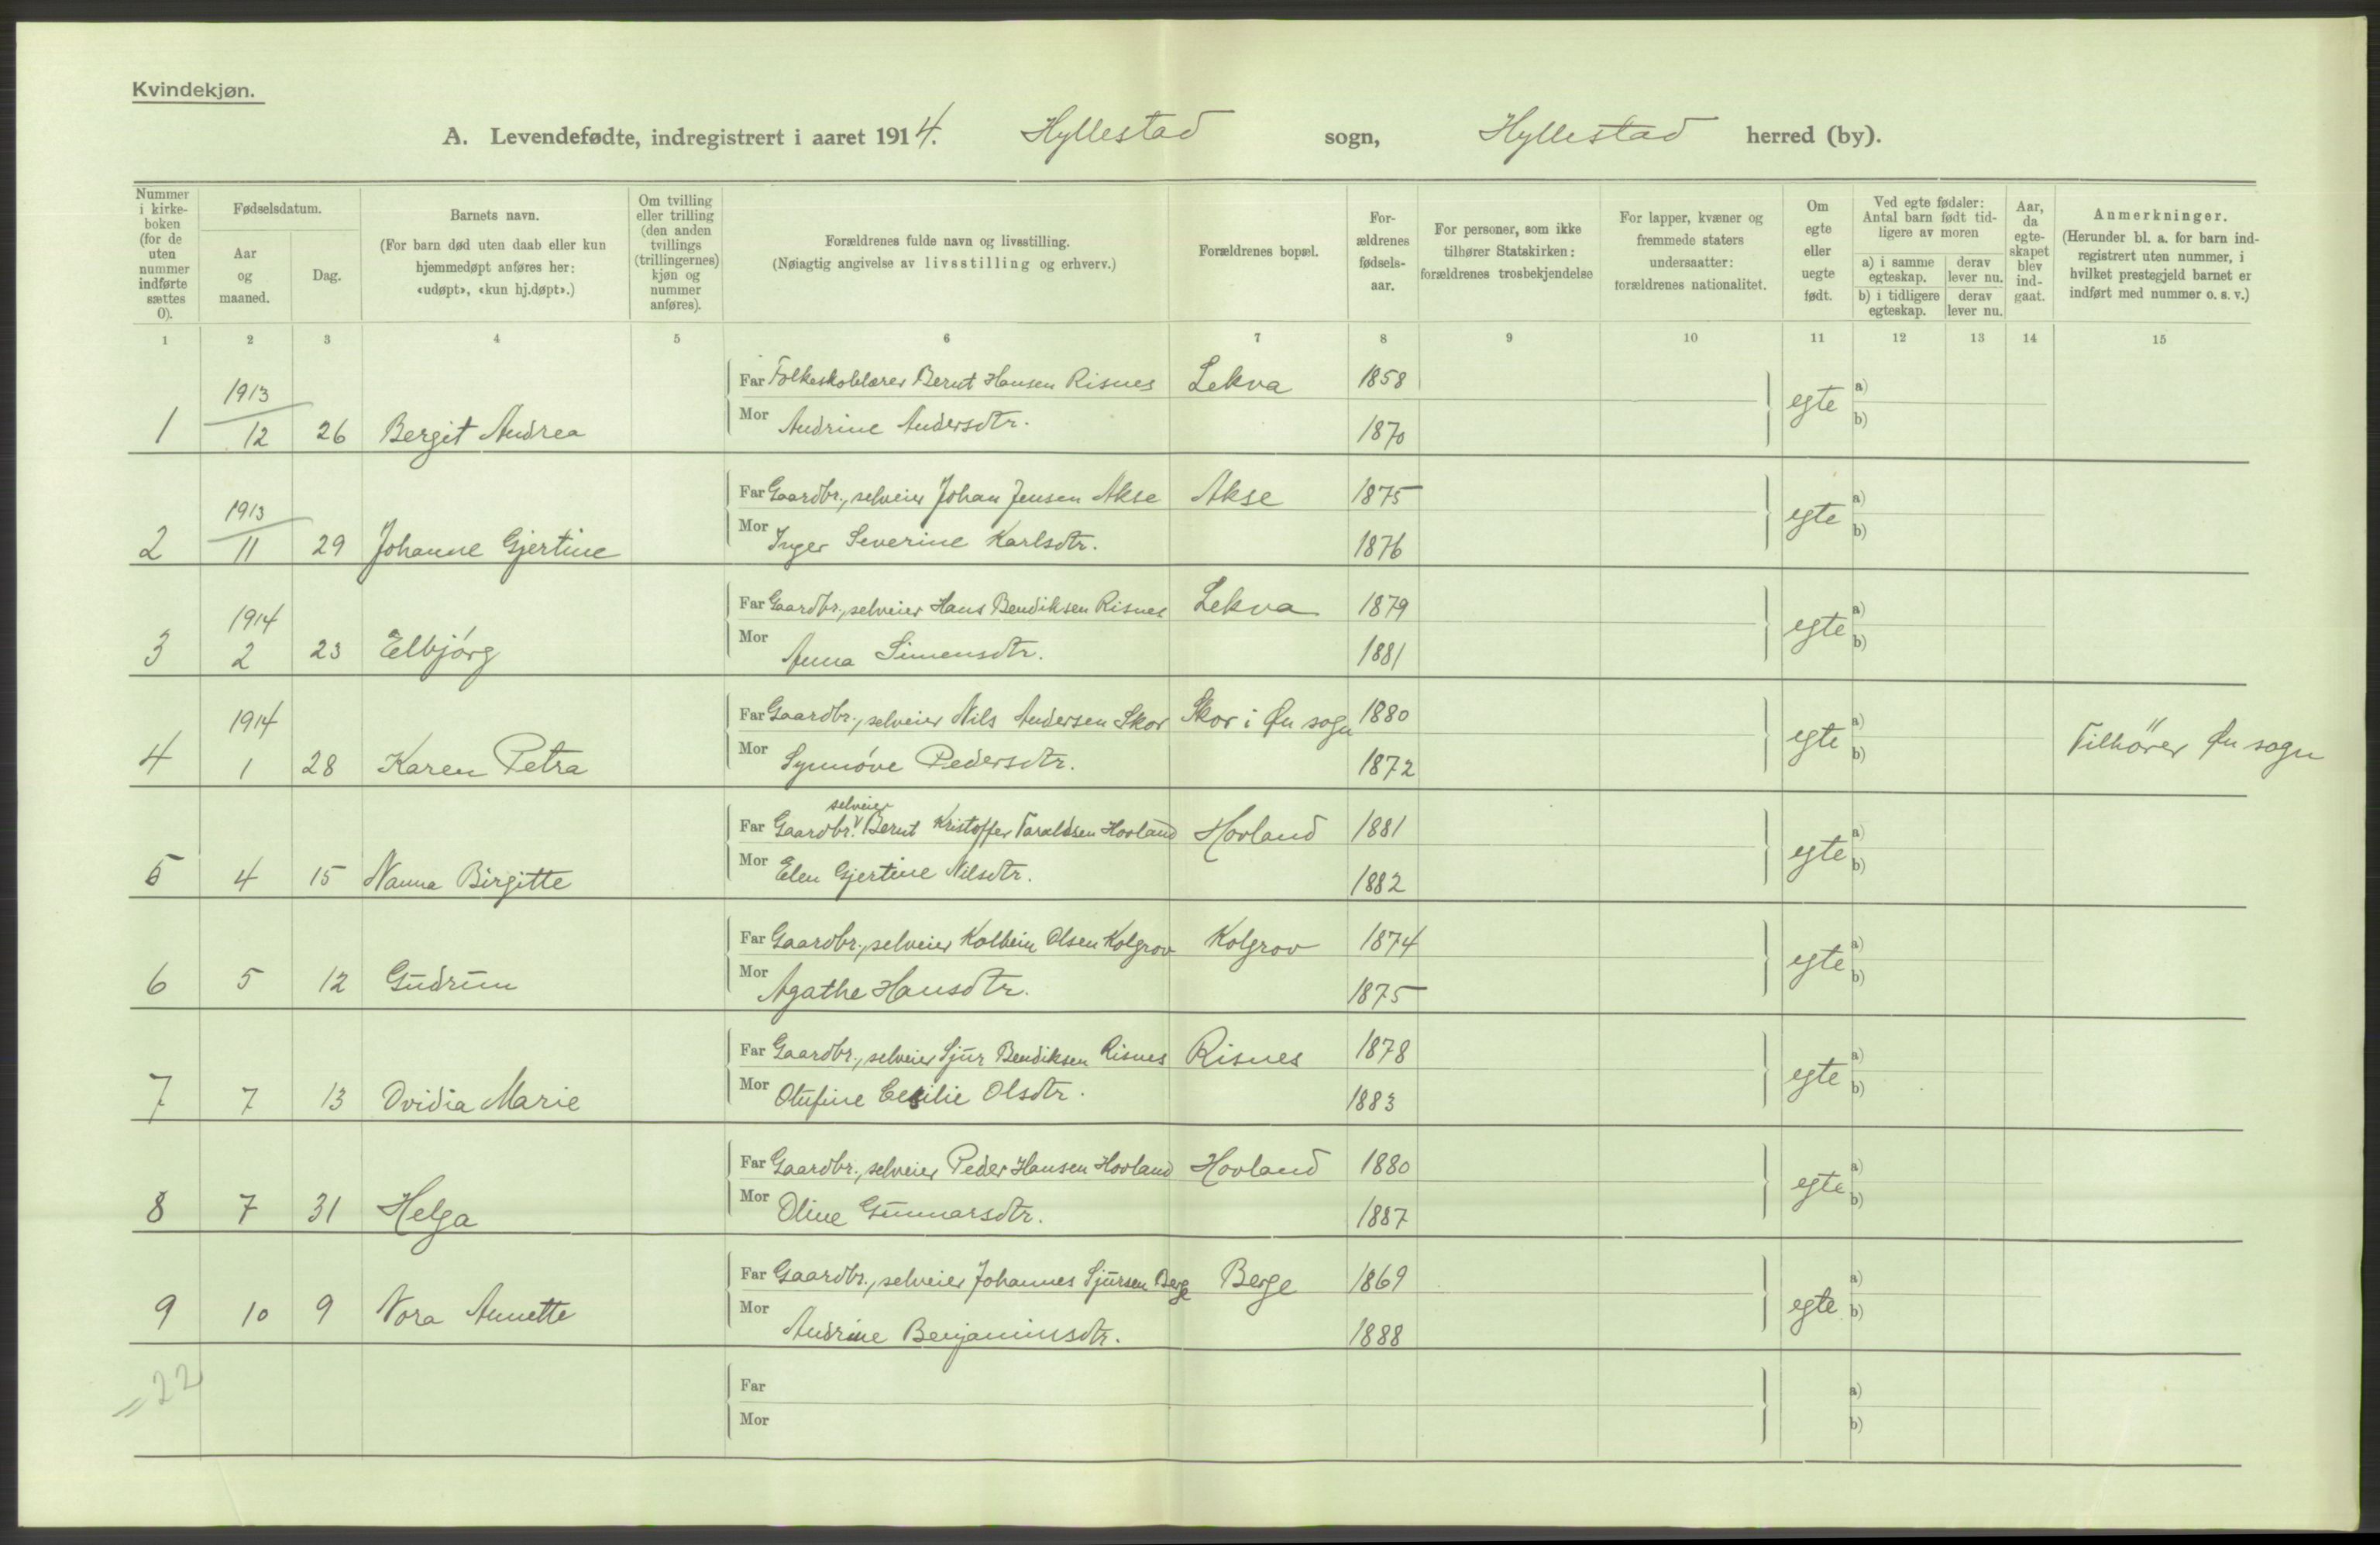 Kvindekjøn.
A. Levendefødte, indregistrert i aaret 1914. Hyllestad sogn, Hyllestad herred (by).
Nummer i kirke-boken (for de uten nummer indførte sættes 0).
Fødselsdatum.
Aar og maaned.
Dag.
Barnets navn.
(For barn død uten daab eller kun hjemmedøpt anføres her: «udøpt», «kun hj.døpt».)
Om tvilling eller trilling (den anden tvillings (trillingernes) kjøn og nummer anføres).
Forældrenes fulde navn og livsstilling.
(Nøiagtig angivelse av livsstilling og erhverv.)
Forældrenes bopæl.
For-ældrenes fødsels-aar.
For personer, som ikke tilhører Statskirken: forældrenes trosbekjendelse
For lapper, kvæner og fremmede staters undersaatter: forældrenes nationalitet.
Om egte eller uegte født.
Ved egte fødsler: Antal barn født tid-ligere av moren
a) i samme egteskap. derav lever nu.
b) i tidligere egteskap. derav lever nu.
Aar, da egte-skapet blev ind-gaat.
Anmerkninger.
(Herunder bl. a. for barn ind-registrert uten nummer, i hvilket prestegjeld barnet er indført med nummer o. s. v.)
1 2 3 4 5 6 7 8 9 10 11 12 13 14 15
1913 Far Folkeskolelærer Bernt Hansen Risnes Lekva 1858 egte a)
1 12 26 Bergit Andrea Mor Andrine Andersdtr. 1870 b)
1913 Far Gaardbr., selveier Johan Jensen Akse Akse 1875 egte a)
2 11 29 Johanne Gjertine Mor Inger Severine Karlsdtr. 1876 b)
1914 Far Gaardbr., selveier Hans Bendiksen Risnes Lekva 1879 egte a)
3 2 23 Elbjórg Mor Anna Simensdtr. 1881 b)
1914 Far Gaardbr., selveier Nils Andersen Skor Skor i Øn sogn 1880 egte a) Tilhører Øn sogn
4 1 28 Karen Petra Mor Synnóve Pedersdtr. 1872 b)
selveier
Far Gaardbr. Bernt Kristoffer Taraldsen Hovland Hovland 1881 egte a)
5 4 15 Nanna Birgitte Mor Elen Gjertine Nilsdtr. 1882 b)
Far Gaardbr., selveier Kolbein Olsen Kolgrov Kolgrov 1874 egte a)
6 5 12 Gudrun Mor Agathe Hansdtr. 1875 b)
Far Gaardbr., selveier Sjur Bendiksen Risnes Risnes 1878 egte a)
7 7 13 Ovidia Marie Mor Olufine Cesilie Olsdtr. 1883 b)
Far Gaardbr., selveier Peder Hansen Hovland Hovland 1880 egte a)
8 7 31 Helga Mor Oline Gunnarsdtr. 1887 b)
Far Gaardbr., selveier Johannes Sjursen Berge Berge 1869 egte a)
9 10 9 Nora Annette Mor Andrine Benjaminsdtr. 1888 b)
=22 Far a)
Mor b)